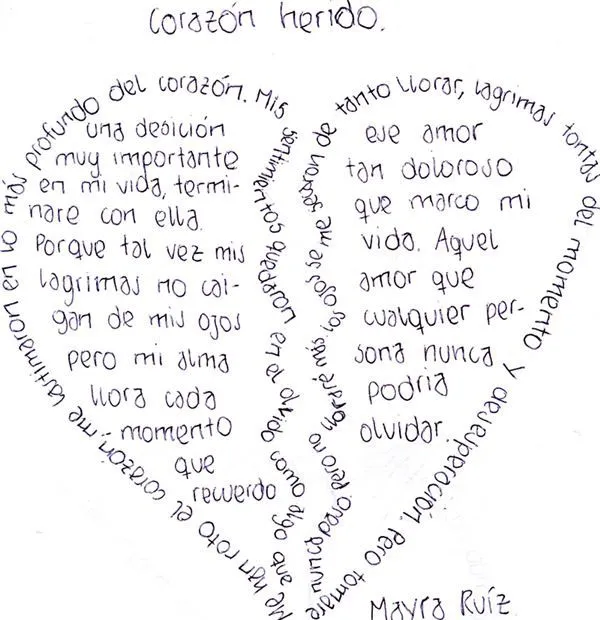 Corazón herido.
Me han roto el corazón, me lastimaron en lo más profundo del corazón. Mis
en la olvido como algo que
nunca pasó pero no ojos se me de tanto llorar, lagrimas tontas del momento y desesperación. Pero tomare
una desición
muy importante
en mi vida, termi-
nare con ella.
Porque tal vez mis
lagrimas no cai-
gan de mis ojos
pero mi alma
llora cada
momento
que
recuerdo
ese amor
tan doloroso
que marco mi
vida. Aquel
amor que
cualquier per-
sona nunca
podria
olvidar.
Mayra Ruíz